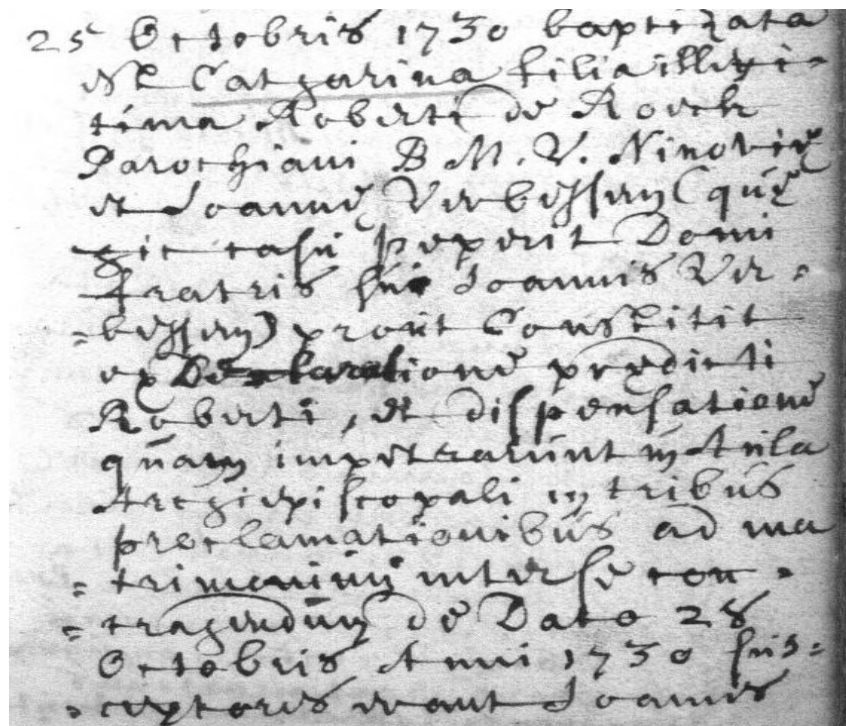 25 Octobris 1730 baptizata
est Catharina filia illegi-
tima Roberti de Roeck
Parochiani B M. V. Ninoviȩ
et Joannȩ Verbessem (quȩ
hic casu peperit Domi
fratris sui Joannis Ver-
-bessem) prout Constitit
ex Declaratione prȩdicti
Roberti, et dispensatione
quam impetrarunt in Aula
Archiepiscopali in tribus
proclamationibus ad ma
-trimonium inter se con-
-trahendum de Dato 28
Octobris Anni 1730 sus=
-ceptores erant Joannis